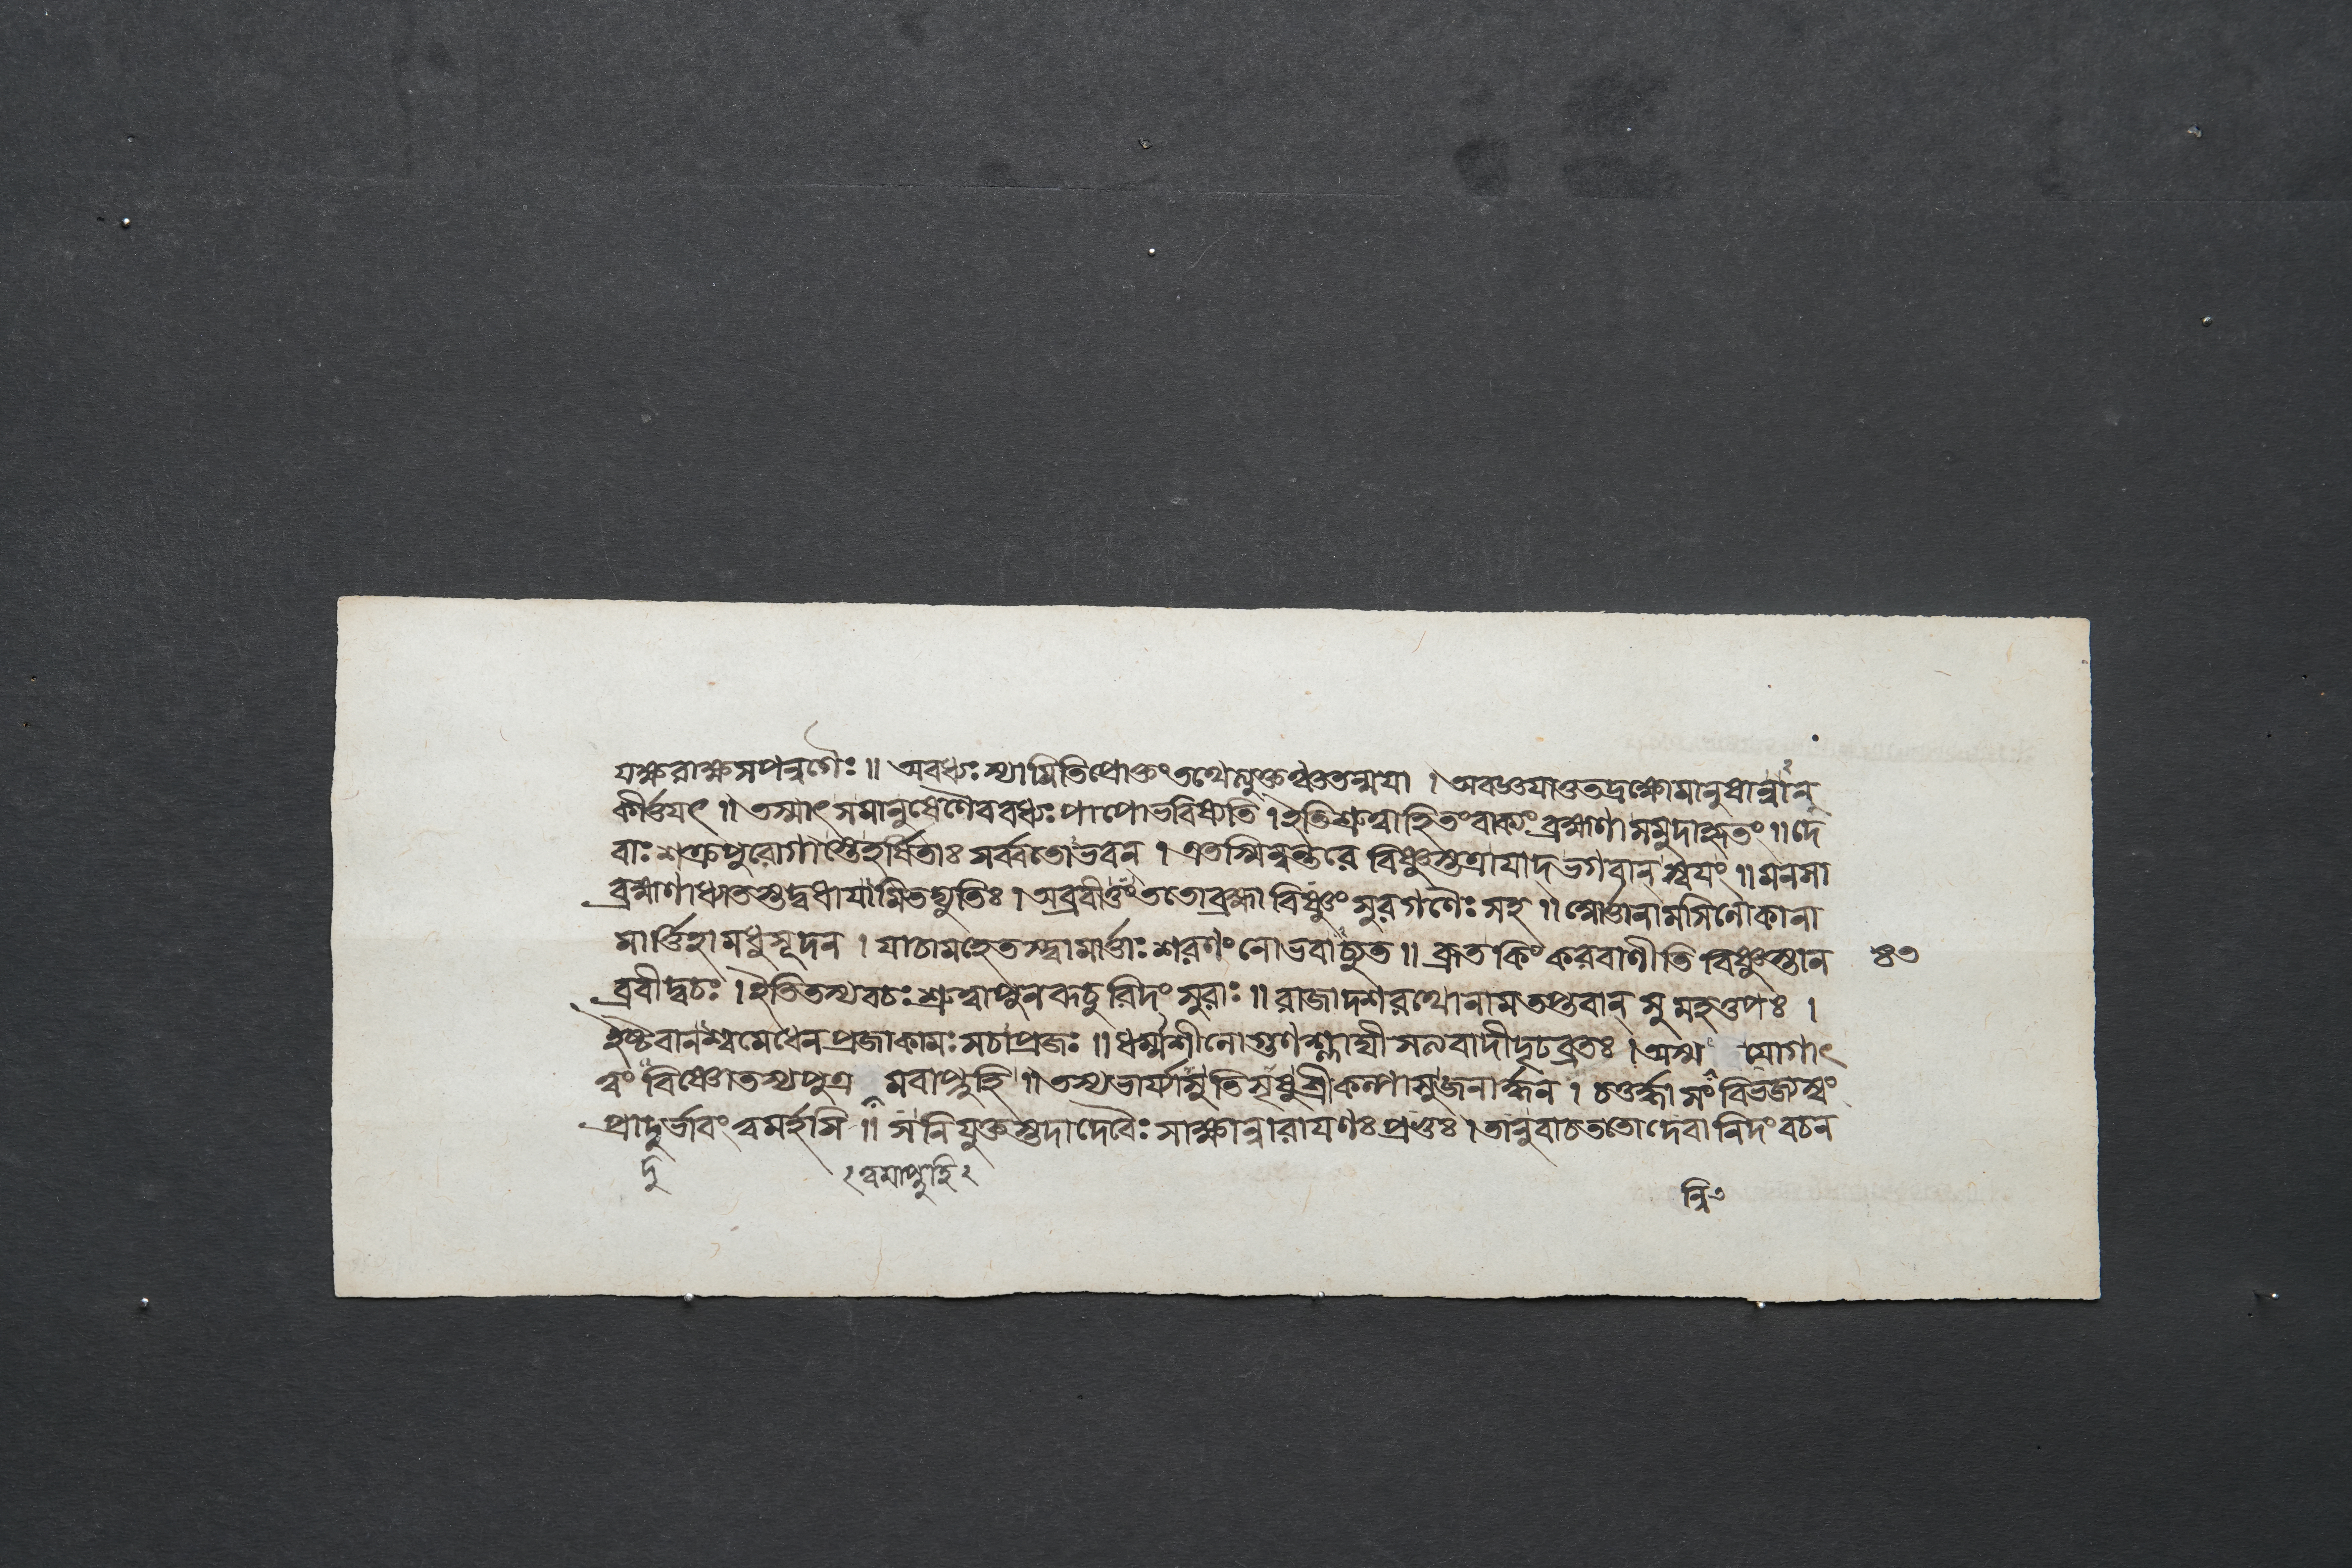 যক্ষরাক্ষসপন্নগৈঃ॥ অবধ্যঃ স্যামিতিপ্রোক্তং তথেত্যুক্তঞ্চতন্ময়া । অবজ্ঞয়াতুতদ্রক্ষোমানুষান্নান্ব
কীর্ত্তয়ৎ॥ তস্মাৎ সমানুষেণৈববধ্যঃ পাপোভবিষ্যতি । ইতিশ্রুত্বাহিতংবাক্যং ব্রহ্মণাসমুদাহৃতং॥ দে
বাঃ শক্রপুরোগাস্তেহর্ষিতাঃ সর্ব্বতোভবন্ । এতস্মিন্নন্তরে বিষ্ণুস্তত্রাযাদ্ ভগবান্ স্বয়ং॥ মনসা
ব্রহ্মণাধ্যাতস্তদ্বধাযামিতদ্যুতিঃ । অব্রবীত্তং ততোব্রহ্মা বিষ্ণুং সুরগণৈঃ সহ॥ ত্মার্ত্তানামসিলোকানা
মার্ত্তিহামধুসূদন । যাচামহেতস্ত্বামার্ত্তাঃ শরণং নোভবাচ্যুত॥ ব্রূত কিং করবাণীতি বিষ্ণুস্তান ৪৩
ব্রবীদ্বচঃ । ইতিতস্যবচঃ শ্রুত্বাপুনরূচুরিদং সুরাঃ॥ রাজাদশরথোনামতপ্তবান্ সুমহত্তপঃ ।
ইষ্টবানশ্বমেধেন প্রজাকামঃ সচাপ্রজঃ॥ ধর্ম্মশীলোগুণশ্লাঘী সত্যবাদীদৃঢব্রতঃ । অস্ম যোগাৎ
ত্বং বিষ্ণোতস্যপুত্র মবাপ্নুহি॥ তস্যভার্য্যাসুতিসৃষুশ্রীকল্পাসুজনার্দ্দন । চতুর্দ্ধাসং বিভজ্যস্বং
প্রাদুর্ভাবং ত্বমর্হসি॥ সনিযুক্তস্তদাদেবৈঃ সাক্ষান্নারায়ণঃ প্রভুঃ । তানুবাচততোদেবানিদং বচন
দু ২ত্বমাপ্নুহি২
ন্নি৩